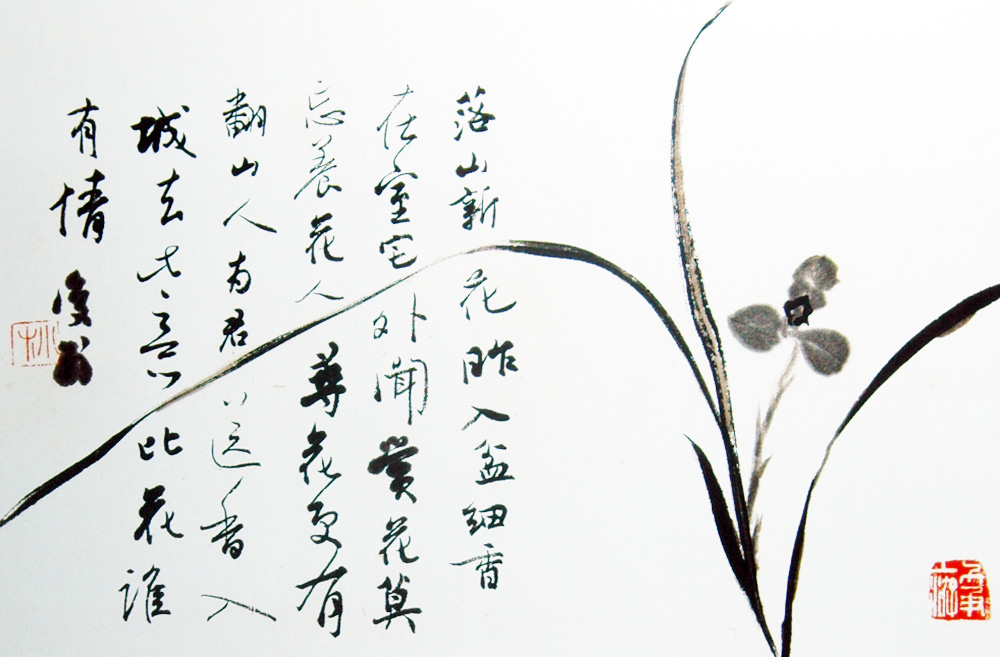 落山新花昨入盆细香
在室宅外闻赏花莫
忘养花人养花更有
翻山人为君送香入
城去此意比花谁
有情